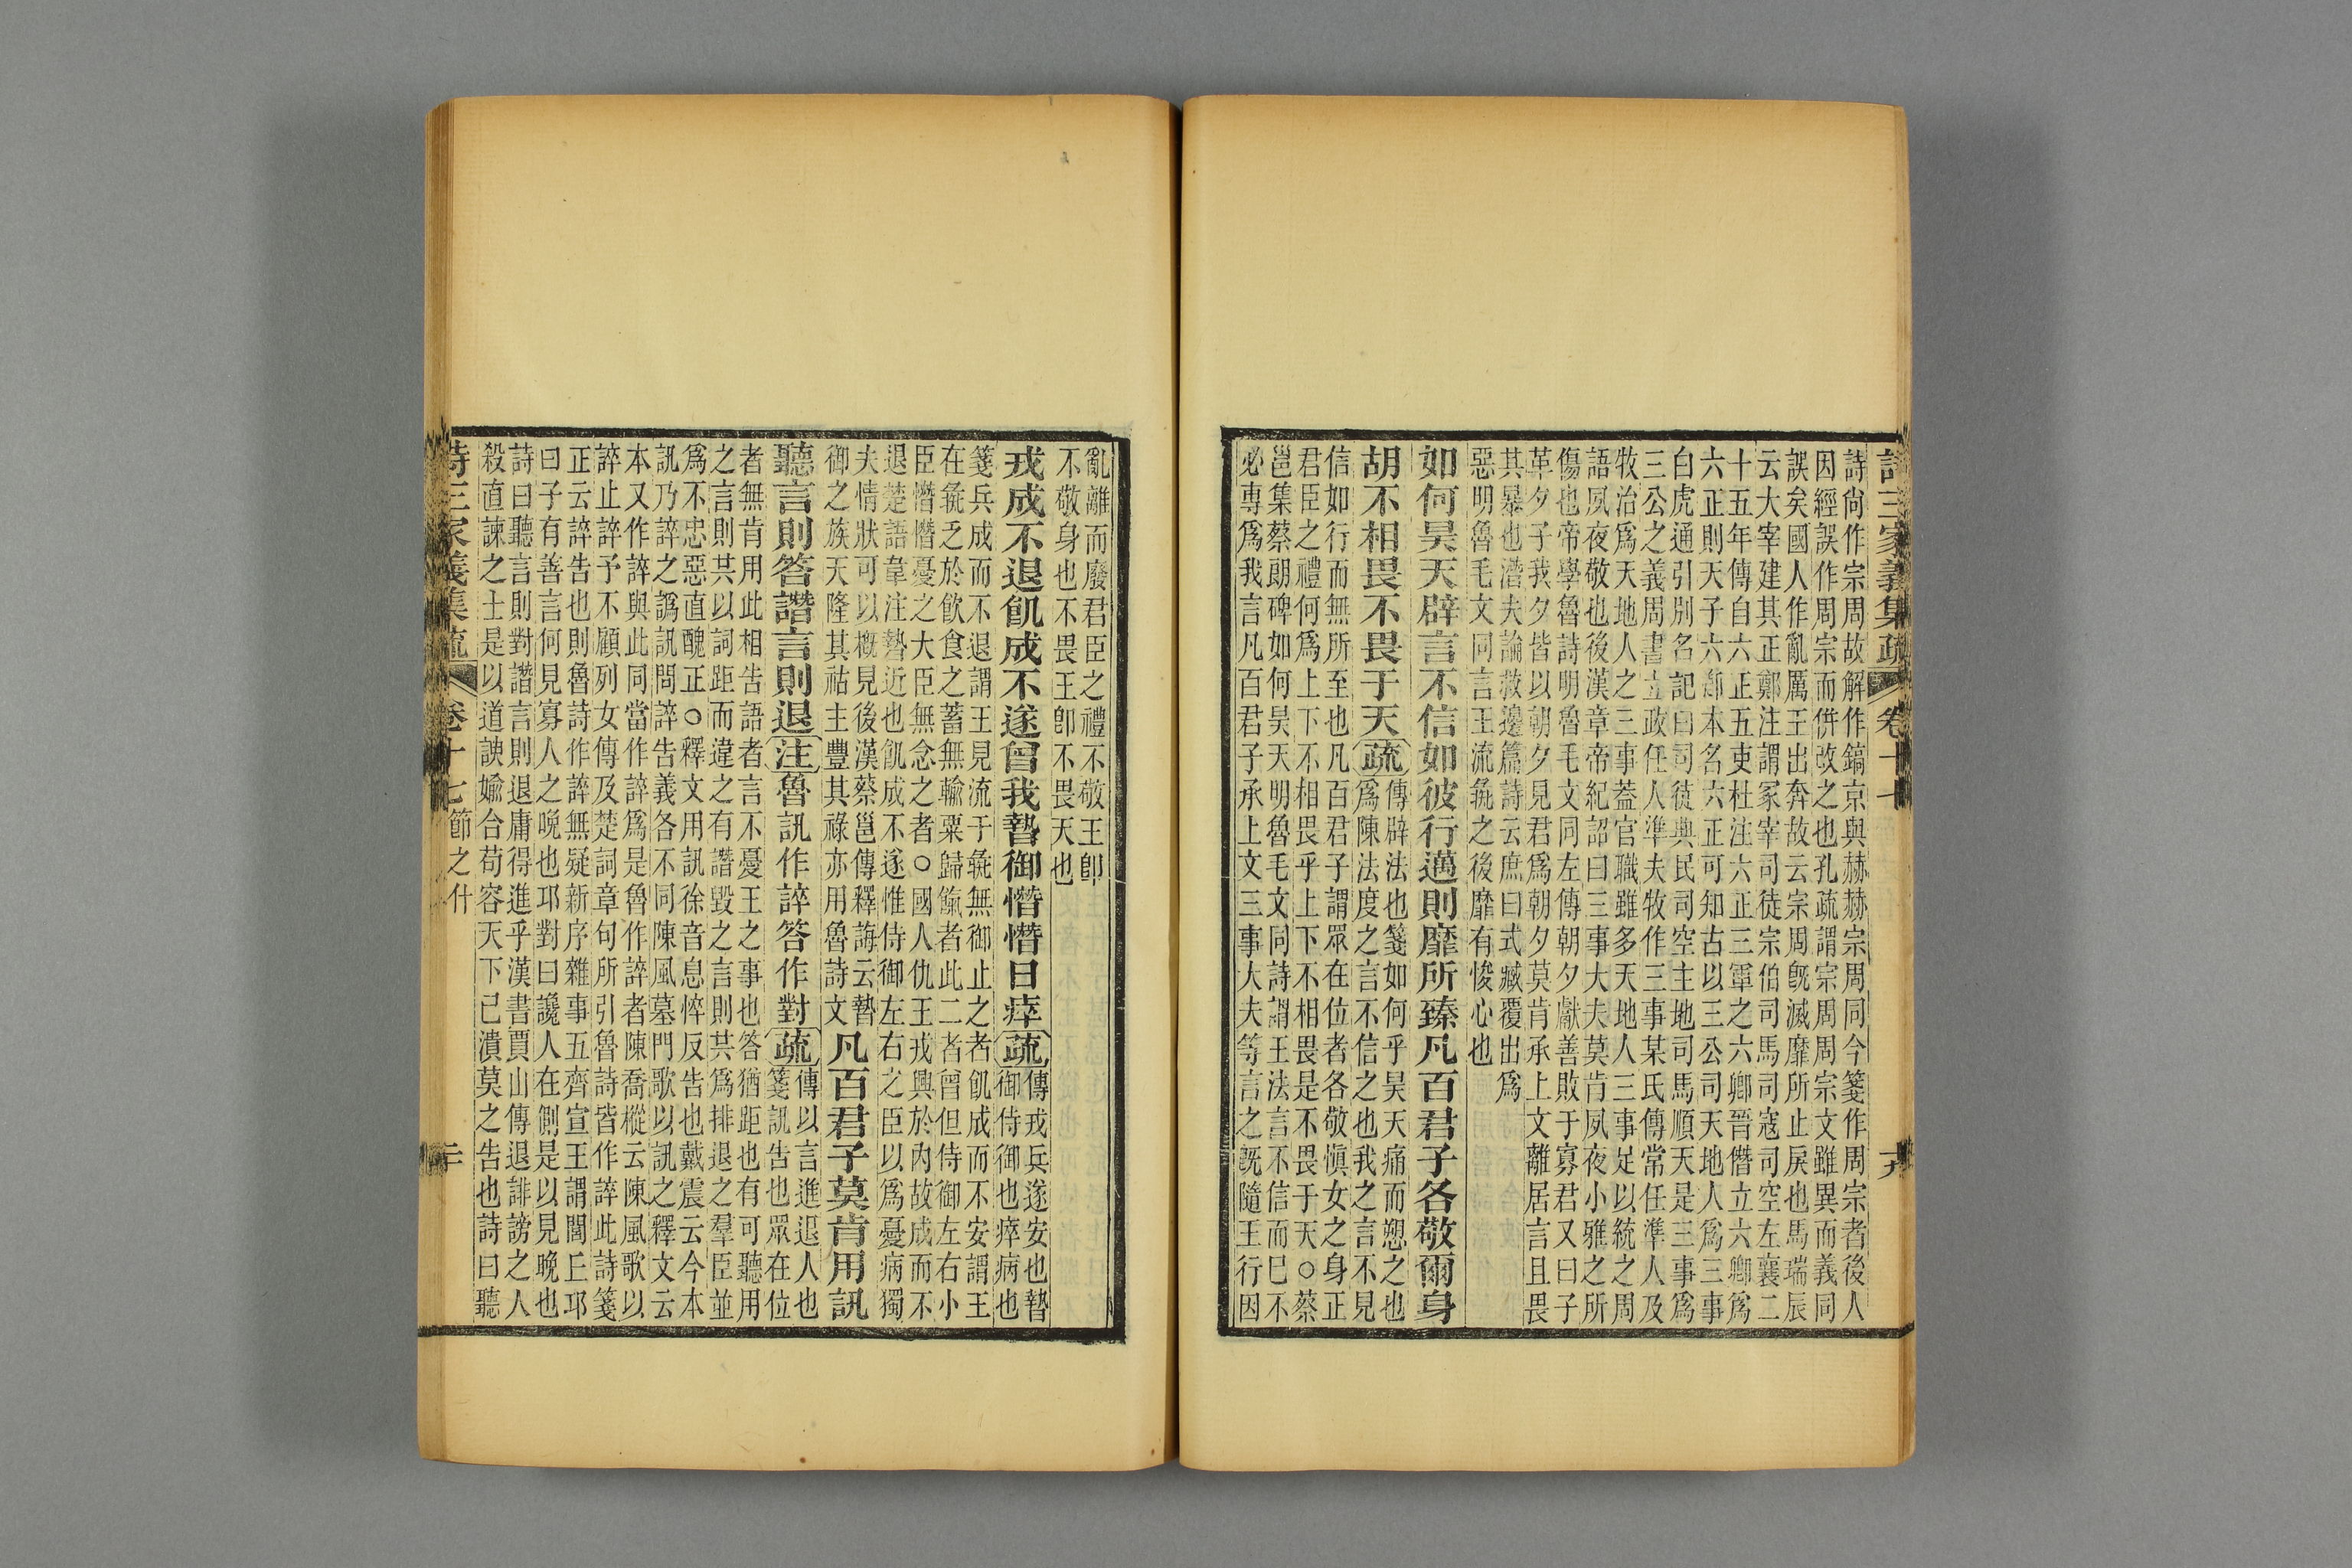 詩三家義集疏 卷十七 十九
詩尚作宗周故解作鎬京與赫赫宗周同今箋作周宗者後人
因經誤作周宗而併改之也孔疏謂宗周周宗文雖異而義同
誤矣國人作亂厲王出奔故云宗周旣滅靡所止戾也馬瑞辰
云大宰建其正鄭注謂冢宰司徒宗伯司馬司寇司空左襄二
十五年傳自六正五吏杜注六正三軍之六卿晉僭立六卿爲
六正則天子六卿本名六正可知古以三公司天地人爲三事
白虎通引別名記曰司徒典民司空主地司馬順天是三事爲
三公之義周書立政任人準夫牧作三事某氏傳常任準人及
牧治爲天地人之三事葢官職雖多天地人三事足以統之周
語夙夜敬也後漢章帝紀詔曰三事大夫莫肯夙夜小雅之所
傷也帝學魯詩明魯毛文同左傳朝夕獻善敗于寡君又曰子
革夕子我夕皆以朝夕見君爲朝夕莫肯承上文離居言且畏
其暴也潛夫論救邊篇詩云庶曰式臧覆出爲
惡明魯毛文同言王流彘之後靡有悛心也
如何昊天辟言不信如彼行邁則靡所臻凡百君子各敬爾身
胡不相畏不畏于天疏傳辟法也箋如何乎昊天痛而愬之也
爲陳法度之言不信之也我之言不見
信如行而無所至也凡百君子謂眾在位者各敬愼女之身正
君臣之禮何爲上下不相畏乎上下不相畏是不畏于天○蔡
邕集蔡朗碑如何昊天明魯毛文同詩謂王法言不信而已不
必專爲我言凡百君子承上文三事大夫等言之旣隨王行因
亂離而廢君臣之禮不敬王卽
不敬身也不畏王卽不畏天也
戎成不退飢成不遂曾我暬御憯憯日瘁疏傳戎兵遂安也暬
御侍御也瘁病也
箋兵成而不退謂王見流于彘無御止之者飢成而不安謂王
在彘乏於飲食之蓄無輸粟歸餼者此二者曾但侍御左右小
臣憯憯憂之大臣無念之者○國人仇王戎興於內故成而不
退楚語韋注暬近也飢成不遂惟侍御左右之臣以爲憂病獨
夫情狀可以概見後漢蔡邕傳釋誨云暬
御之族天隆其祜主豐其祿亦用魯詩文凡百君子莫肯用訊
聽言則答譖言則退注魯訊作誶答作對疏傳以言進退人也
箋訊告也眾在位
者無肯用此相告語者言不憂王之事也答猶距也有可聽用
之言則共以詞距而違之有譖毀之言則共爲排退之羣臣並
爲不忠惡直醜正○釋文用訊徐音息悴反告也戴震云今本
訊乃誶之譌訊問誶告義各不同陳風墓門歌以訊之釋文云
本又作誶與此同當作誶爲是魯作誶者陳喬樅云陳風歌以
誶止誶予不顧列女傳及楚詞章句所引魯詩皆作誶此詩箋
正云誶告也則魯詩作誶無疑新序雜事五齊宣王謂閭丘卭
曰子有善言何見寡人之晚也卭對曰讒人在側是以見晚也
詩曰聽言則對譖言則退庸得進乎漢書賈山傳退誹謗之人
殺直諫之士是以道諛媮合苟容天下已潰莫之告也詩曰聽
詩三家義集疏 卷十七 節之什 二十